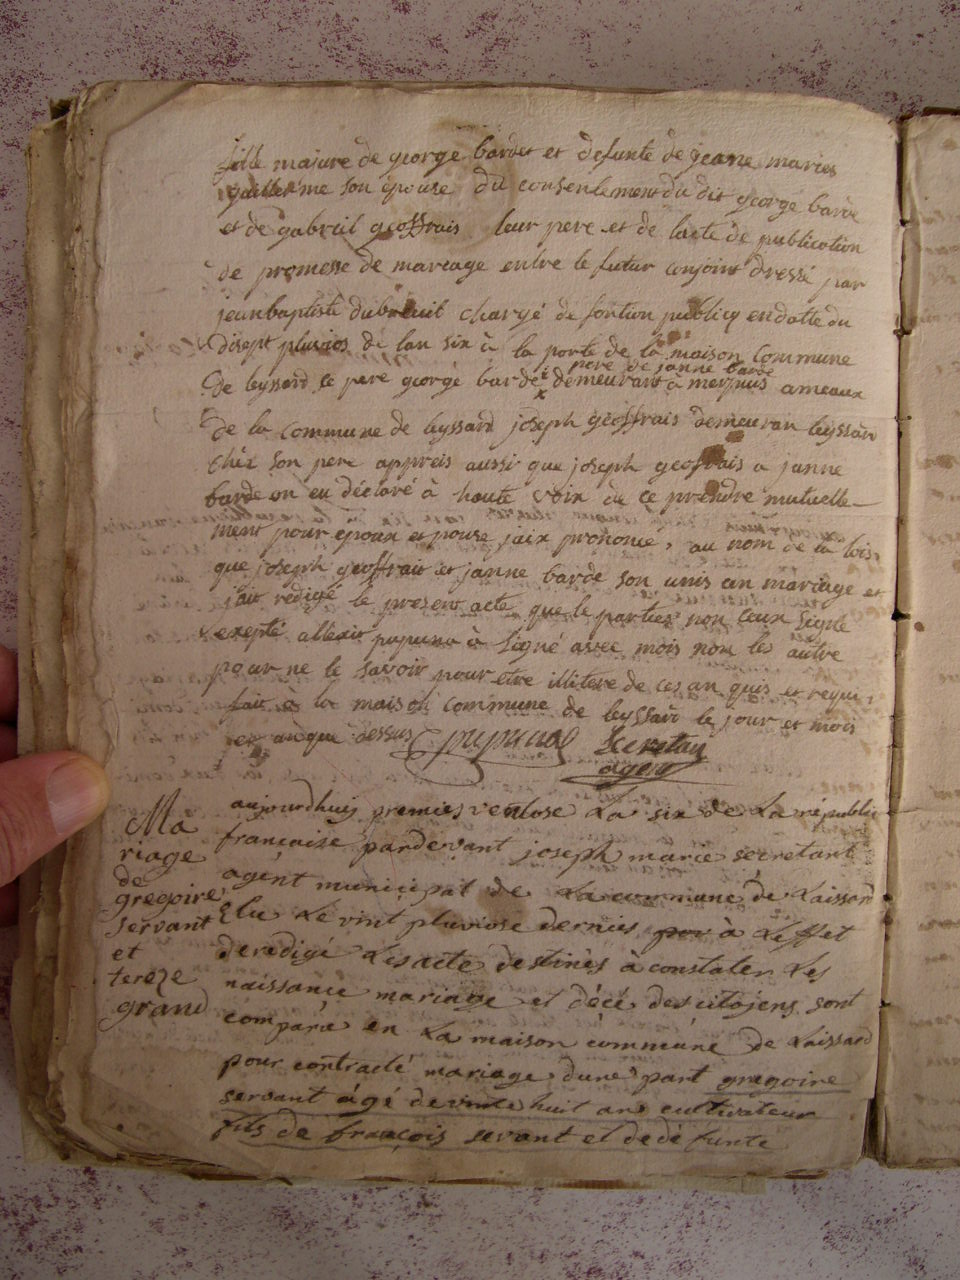 fille majure de george bardet et defunte de jeane maries
guillerme son epouse du consentement du dit george barde
et de gabriil geoffrais leur pere et de lacte de publication
de promesse de mariage entre le futur conjoint dressé par
jeanbaptiste dubreuil chargé de fontion publicq en datte du
disept pluvios de lan six à la porte de la maison Commune
pere de janne barde
de leyssard le pere george bardé demeurant à merpuis ameaux
de la Commune de leyssard joseph geoffrais demeuran leyssard
chez son pere appreis aussi que joseph geoffrais a janne
barde on eu déclaré à haute voix de ce prendre mutuelle-
ment pour epoux et pouse jaix prononcé, au nom de la lois,
que joseph geoffrait et janne barde son unis an mariage et
jait redigé le present acte que le parties non ceux signé
exepté allexit pupuna à Signé avec mois non les autre
pour ne le savoir pour etre illitere de ces an quis et requi,
fait à la maison Commune de leyssard le jour et mois
et an que dessus pupunat Secretan
agent
Ma
riage
de
gregoire
servant
et
tereze
grand
aujourdhuij premies ventose La six de La républi
française pardevant joseph marce secretant
agent municipat de La commune de Laissard
Elu Le vint pluviose dernies por à Leffet
deredigé Les acte destinés à constater Les
naissance mariage et décé des citojens sont
comparie en La maison commune de Laissard
pour contracté mariage dune part gregoire
servant âgé de vinte huit ans cultivateur
fils de françois sevant et de dé funte